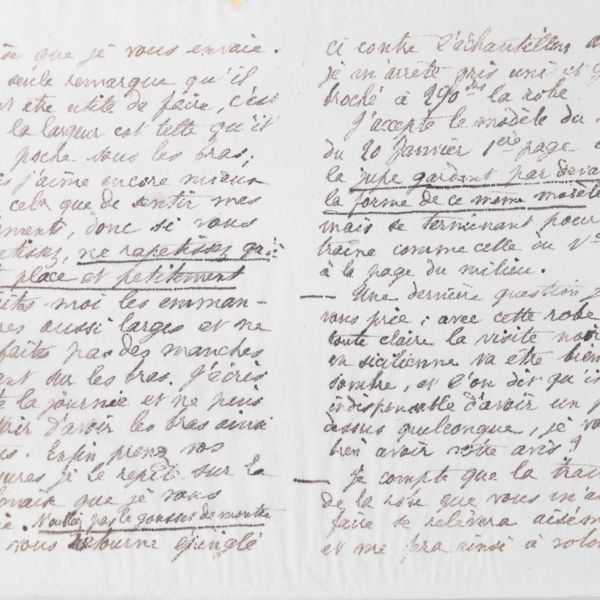 que je vous envoie.
seule remarque qu'il
etre utile de faire, c'est
la largeur est telle qu'il
poche sous les bras;
j'aime encore mieux
cela que de sentir mes
donc si vous
ne rapetissez qu'
place et petitement
moi les emman-
aussi larges et ne
faites pas des manches
sur les bras. J'écris
la journée et ne puis
d'avoir les bras ainsi
Enfin prenez vos
je le répète sur la
que je vous
N'oubliez pas le gousset de montre
vous retourne épinglé
ci contre l'échantillon
je m'arrête gris uni et
broché à 290 frs la robe
J'accepte le modèle du
du 20 Janvier 1ère page
la jupe gardant par devant
la forme de ce même modèle
mais se terminant pour
traine comme celle du
à la page du milieu.
— Une dernière question
vous prie; avec cette robe
toute claire la visite noire
en sicilienne va etre bien
sombre, et l'on dit qu'il
indispensable d'avoir un
dessus quelconque, je
bien avoir votre avis?
— Je compte que la
de la robe que vous
faire se relèvera
et me fera ainsi à